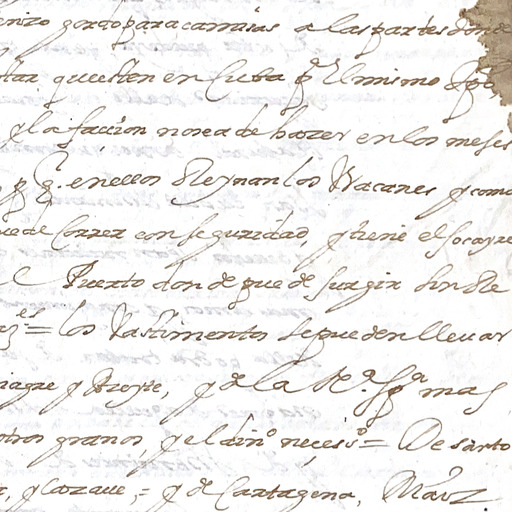 enzo gordo para camisas a las partes donde
star que esten en Cuba pª el mismo
y la faccion no sea de hazer en los meses
pq en ellos Reynan los Vracanes y como
uede Correr con seguridad, y tiene el socayre
el Puerto donde puede surgir sin
es = los Vastimentos se pueden lleuar
nagre y Azeyte, y de la Rª. Spª mas
otros granos, y el dinº necesºº = De sancto
y cazaue, = y de Cartagena, Maiz